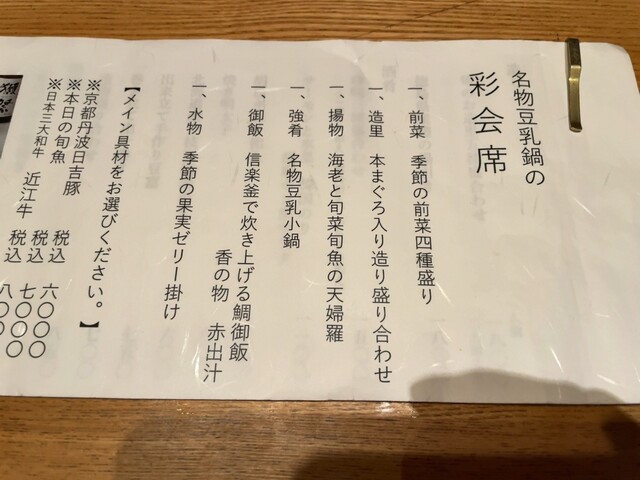 名物豆乳鍋の
彩会席
一、前菜 季節の前菜四種盛り
一、造里 本まぐろ入り造り盛り合わせ
一、揚物 海老と旬菜旬魚の天婦羅
一、強肴 名物豆乳小鍋
一、御飯 信楽釜で炊き上げる鯛御飯
香の物 赤出汁
一、水物 季節の果実ゼリー掛け
【メイン具材をお選びください。】
※京都丹波日吉豚 税込 六〇〇〇
※本日の旬魚 税込 七〇〇〇
※日本三大和牛 近江牛 税込 八〇〇〇